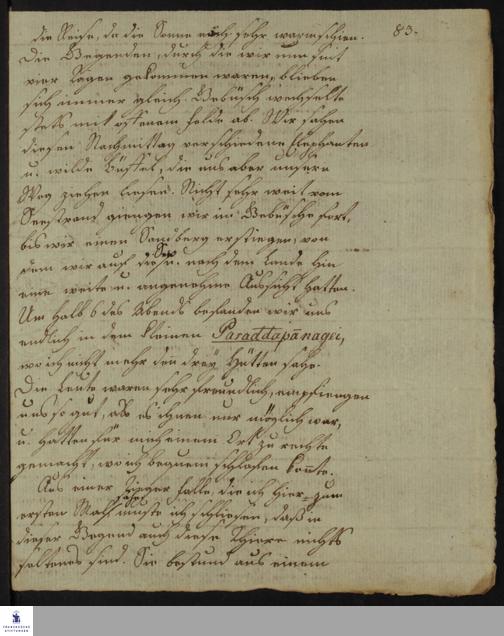 die Reise, da die Sonne noch sehr warm schien. 83.
Die Gegenden, durch die wir nun seit
vier Tagen gekommen waren, blieben
sich immer gleich. Gebüsch wechselte
stets mit offenem Felde ab. Wir sahen
diesen Nachmittag verschiedene Elephanten
u. wilde Büffel, die uns aber unsern
Weg ziehen liesen. Nicht sehr weit vom
Seestrand giengen wir im Gebüsche fort,
bis wir einen Sandberg erstiegen, von
dem wir auf die See u. nach dem Lande hin
eine weite u. angenehme Aussicht hatten.
Um halb 6 des Abends befanden wir uns
endlich in dem kleinen Paraddapānagei,
wo ich nicht mehr den drey Hütten sahe.
Die Leute waren sehr freundlich, empfiengen
uns so gut, als es ihnen nur möglich war,
u. hatten für mich einen Ort zu rechte
gemacht, wo ich bequem schlafen konte.
Aus einer Tieger falle, die ich hier zum
ersten Mal sahe, muste ich schliesen, daß in
dieser Gegend auch diese Thiere nichts
seltenes sind. Sie bestund aus einem
FRANCKESCHE
STIFTUNGEN